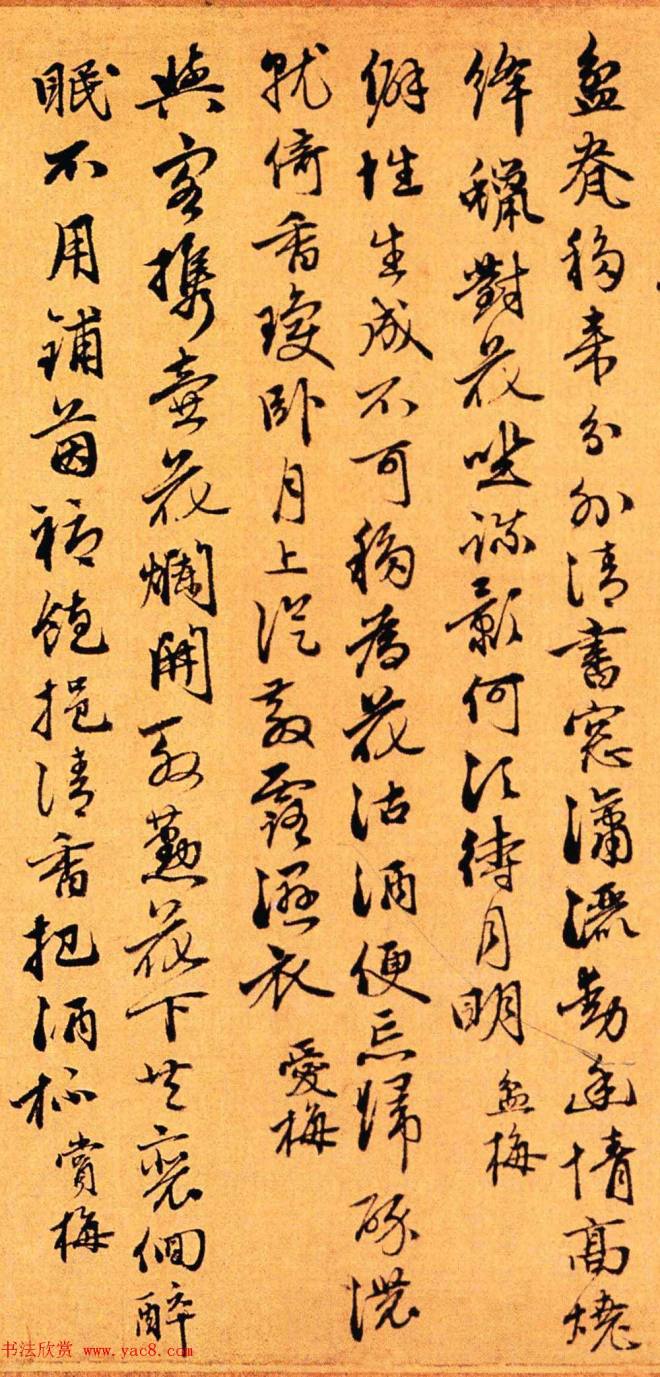 盆養移来分外清書窓瀟灑動逸情高燒
絳蠟對花坐疎影何須待月明 盆梅
僻性生成不可移為花沽酒便忘歸
就倚香瓊卧月上従教露濕衣 愛梅
與客攜壺花爛開殷懃花下共裵佪醉
眠不用鋪茵褥飽挹清香把酒杯 賞梅
书法欣赏 www.yac8.com